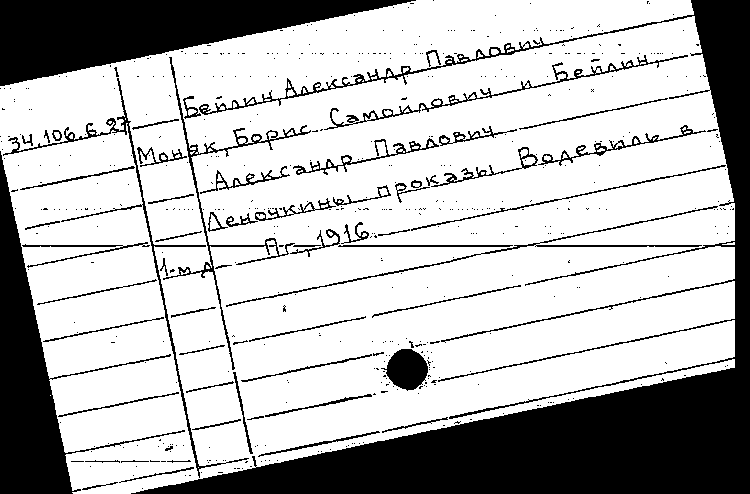 Бейлин, Александр Павлович
34.106.6.27
Моняк, Борис Самойлович и Бейлин,
Александр Павлович
Леночкины проказы Водевиль в
1-м д
Пг., 1916.